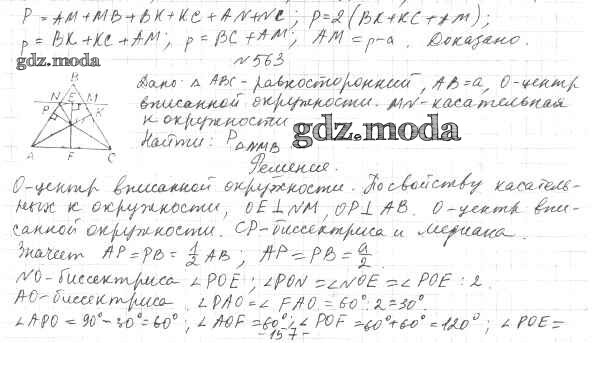 P = AM + MB + BK + KC + AN + NC; P = 2(BK + KC + AM);
p = BK + KC + AM; p = BC + AM; AM = p - a. Доказано.
№563
gdz.moda
Дано: △ ABC - равносторонний, AB = a, O - центр
вписанной окружности. MN - касательная
к окружности
Найти: P△NMB
gdz.moda
B
N E M
P K
O
A F C
Решение.
O - центр вписанной окружности. По свойству касатель-
ных к окружности, OE ⊥ NM, OP ⊥ AB. O - центр впи-
санной окружности. CP - биссектриса и медиана.
Значит AP = PB = 1/2 AB, AP = PB = a/2.
NO - биссектриса ∠POE; ∠PON = ∠NOE = ∠POE : 2.
AO - биссектриса. ∠PAO = ∠FAO = 60° : 2 = 30°.
∠APO = 90° - 30° = 60°; ∠AOF = 60°; ∠POF = 60° + 60° = 120°; ∠POE =
- 157 -